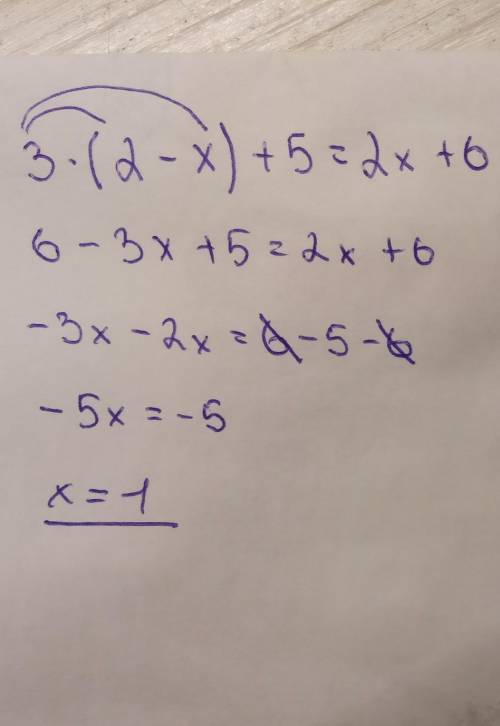 3·(2-x)+5=2x+6
6-3x+5=2x+6
-3x-2x=6-5-6
-5x=-5
x=1